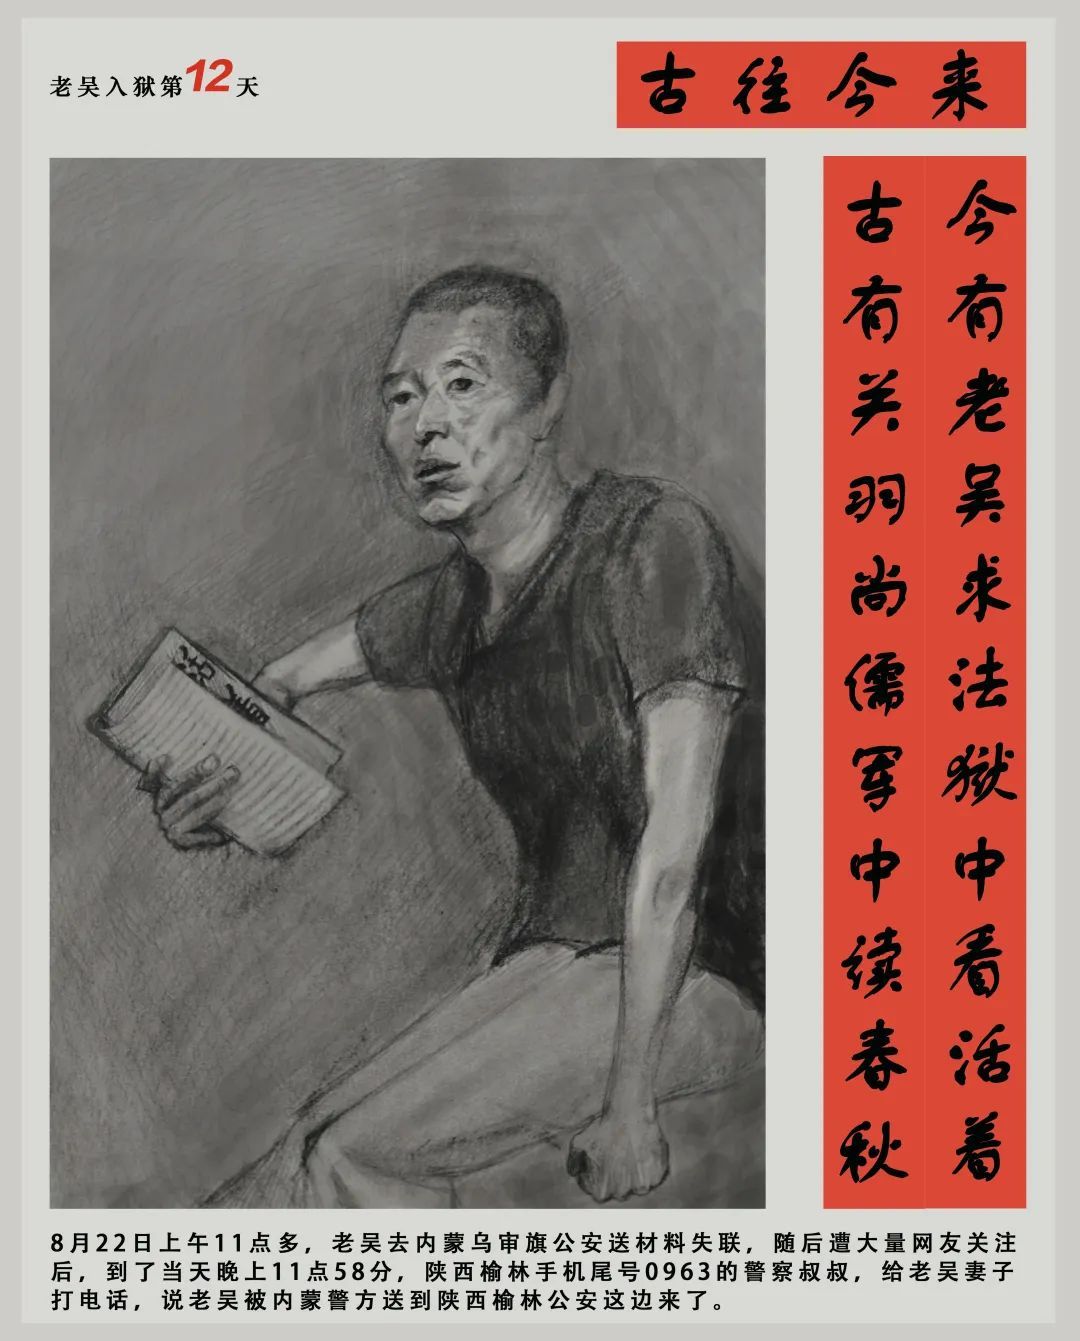 老吴入狱第12天
古往今来
今有老吴求法獄中看活着
古有关羽尚儒军中续春秋
活着
8月22日上午11点多，老吴去内蒙乌审旗公安送材料失联，随后遭大量网友关注
后，到了当天晚上11点58分，陕西榆林手机尾号0963的警察叔叔，给老吴妻子
打电话，说老吴被内蒙警方送到陕西榆林公安这边来了。